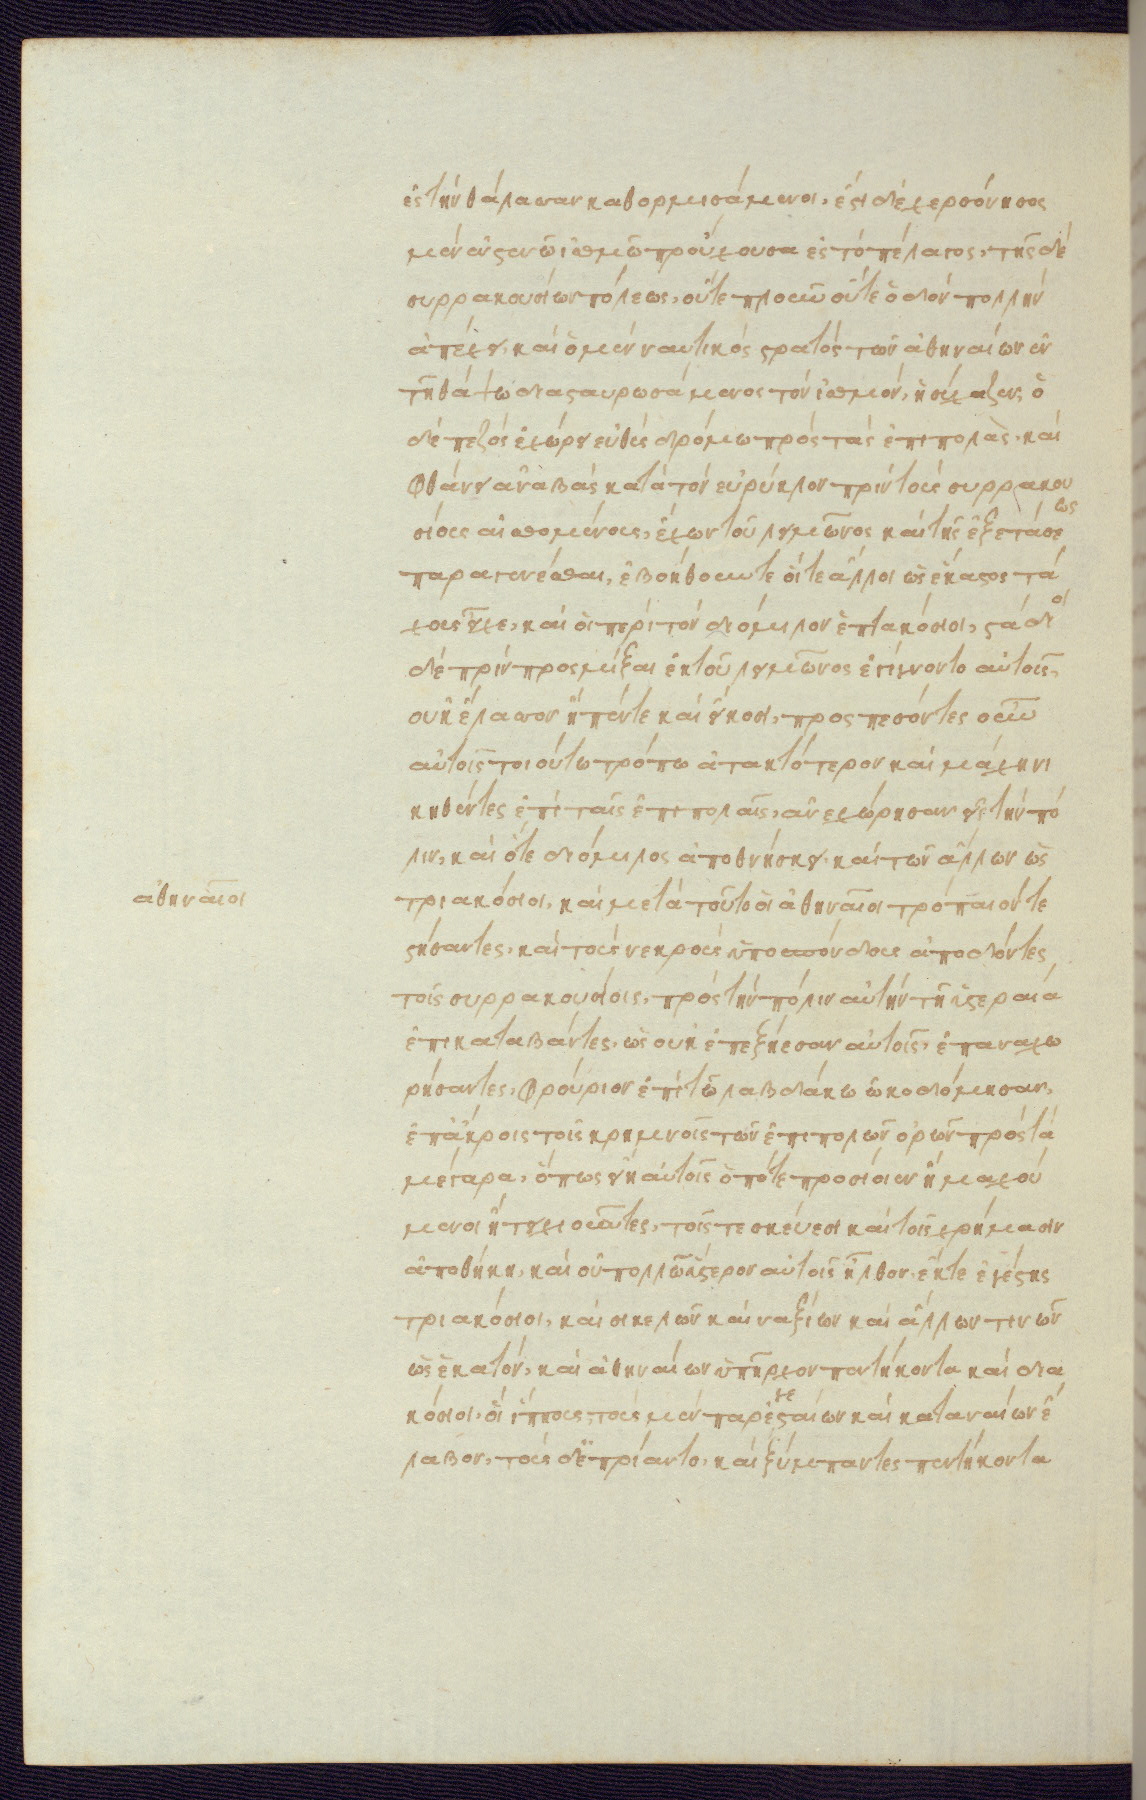 ἐς τὴν θάλασσαν καθορμισάμενοι, ἔστι δὲ χερσόνησος
μὲν ἀνστενῶ ἰσθμῶ προὔχουσα ἐς τὸ πέλαγος, τῆς δὲ
συρρακουσίων πόλεως, οὔτε πλοῦν οὔτε ὁδὸν πολλὴν
ἀπέχει, καὶ ὁ μὲν ναυτικὸς στρατὸς τῶν ἀθηναίων ἐν
τῆ θάψω διασταυρωσάμενος τὸν ἰσθμὸν, ἡσύχαζεν, ὁ
δὲ πεζὸς ἐχώρει εὐθὺς δρόμω πρὸς τὰς ἐπιπολὰς, καὶ
φθάνει ἀναβὰς κατὰ τὸν εὐρύηλον πρὶν τοὺς συρρακου
σίους αἰσθομένους, ἐκ τοῦ λειμῶνος καὶ τῆς ἐξετάσεως
παραγενέσθαι, ἐβοήθουν τε οἵ τε ἄλλοι ὡς ἕκαστος τά
χους εἶχε, καὶ οἱ περὶ τὸν διόμιλον ἑπτακόσιοι, στάδιοι
δὲ πρὶν προσμίξαι ἐκ τοῦ λειμῶνος ἐγίγνοντο αὐτοῖς,
οὐκ ἔλασσον ἢ πέντε καὶ εἴκοσι, προσπεσόντες οὖν
αὐτοῖς τοιούτω τρόπω ἀτακτότερον καὶ μάχη νι
κηθέντες ἐπὶ ταῖς ἐπιπολαῖς, ἀνεχώρησαν εἰς τὴν πό
λιν, καὶ ὅτε διόμιλος ἀποθνήσκει, καὶ τῶν ἄλλων ὡς
ἀθηναῖοι
τριακόσιοι, καὶ μετὰ τοῦτο οἱ ἀθηναῖοι τρόπαιόν τε
στήσαντες, καὶ τοὺς νεκροὺς ὑποσπόνδους ἀποδόντες
τοῖς συρρακουσίοις, πρὸς τὴν πόλιν αὐτὴν τῆ ὑστεραία
ἐπικαταβάντες, ὡς οὐκ ἐπεξήεσαν αὐτοῖς, ἐπαναχω
ρήσαντες, φρούριον ἐπὶ τῶ λαβδάλω ὠκοδόμησαν,
ἐπ' ἄκροις τοῖς κρημνοῖς τῶν ἐπιπολῶν ὁρῶν πρὸς τὰ
μέγαρα, ὅπως εἴη αὐτοῖς ὁπότε προσίοιεν ἢ μαχού
μενοι ἢ τειχιοῦντες, τοῖς τε σκεύεσι καὶ τοῖς χρήμασιν
ἀποθήκη, καὶ οὐ πολλῶ ὕστερον αὐτοῖς ἦλθον, ἔκ τε ἐγέστης
τριακόσιοι, καὶ σικελῶν καὶ ναξίων καὶ ἄλλων τινῶν
ὡς ἑκατὸν, καὶ ἀθηναίων ὑπῆρχον πεντήκοντα καὶ δια
κόσιοι, οἷς ἵππους τοὺς μὲν παρ' ἐγεσταίων καὶ καταναίων ἔ
λαβον, τοὺς δ' ἐπρίαντο, καὶ ξύμπαντες πεντήκοντα